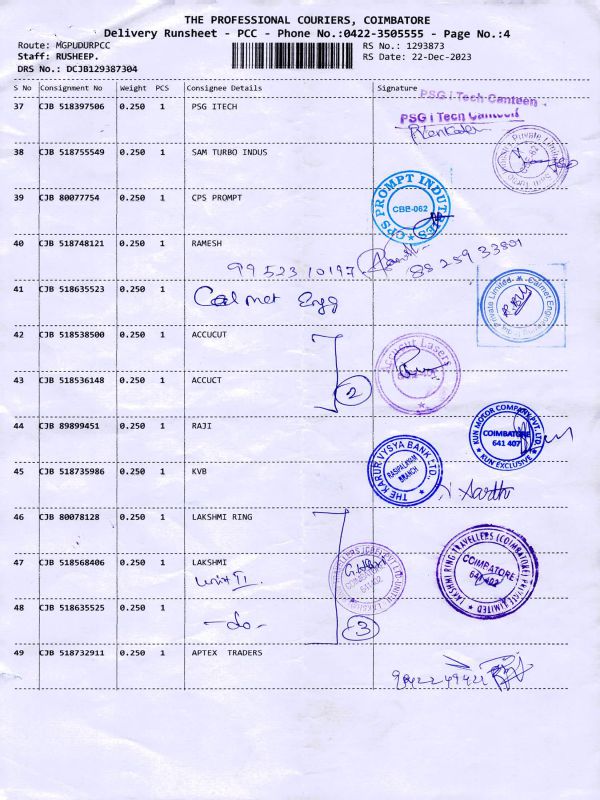 THE PROFESSIONAL COURIERS, COIMBATORE
Delivery Runsheet - PCC - Phone No.:0422-3505555 - Page No.:4
Route: MGPUDURPCC
RS No.: 1293873
Staff: RUSHEEP.
RS Date: 22-Dec-2023
DRS No.: DCJB129387304
S No Consignment No Weight PCS Consignee Details Signature
PSG i Tech Canteen
37 CJB 518397506 0.250 1 PSG ITECH
PSG i Tech Canteen
38 CJB 518755549 0.250 1 SAM TURBO INDUS
39 CJB 80077754 0.250 1 CPS PROMPT
CPS PROMPT INDUTRIES
CBE-062
40 CJB 518748121 0.250 1 RAMESH
99523 10197
88259 33801
41 CJB 518635523 0.250 1
Calmet Engg
42 CJB 518538500 0.250 1 ACCUCUT
Accucut Lasers
43 CJB 518536148 0.250 1 ACCUCT
2
44 CJB 89899451 0.250 1 RAJI
KUN MOTOR COMPANY PVT. LTD.
COIMBATORE
641 407
KUN EXCLUSIVE
45 CJB 518735986 0.250 1 KVB
THE KARUR VYSYA BANK LTD.,
RASIPALAYAM
BRANCH
46 CJB 80078128 0.250 1 LAKSHMI RING
47 CJB 518568406 0.250 1 LAKSHMI
unit II.
LAKSHMI RING TRAVELLERS (COIMBATORE) PRIVATE LIMITED
COIMBATORE
641 402
48 CJB 518635525 0.250 1
-do-
3
49 CJB 518732911 0.250 1 APTEX TRADERS